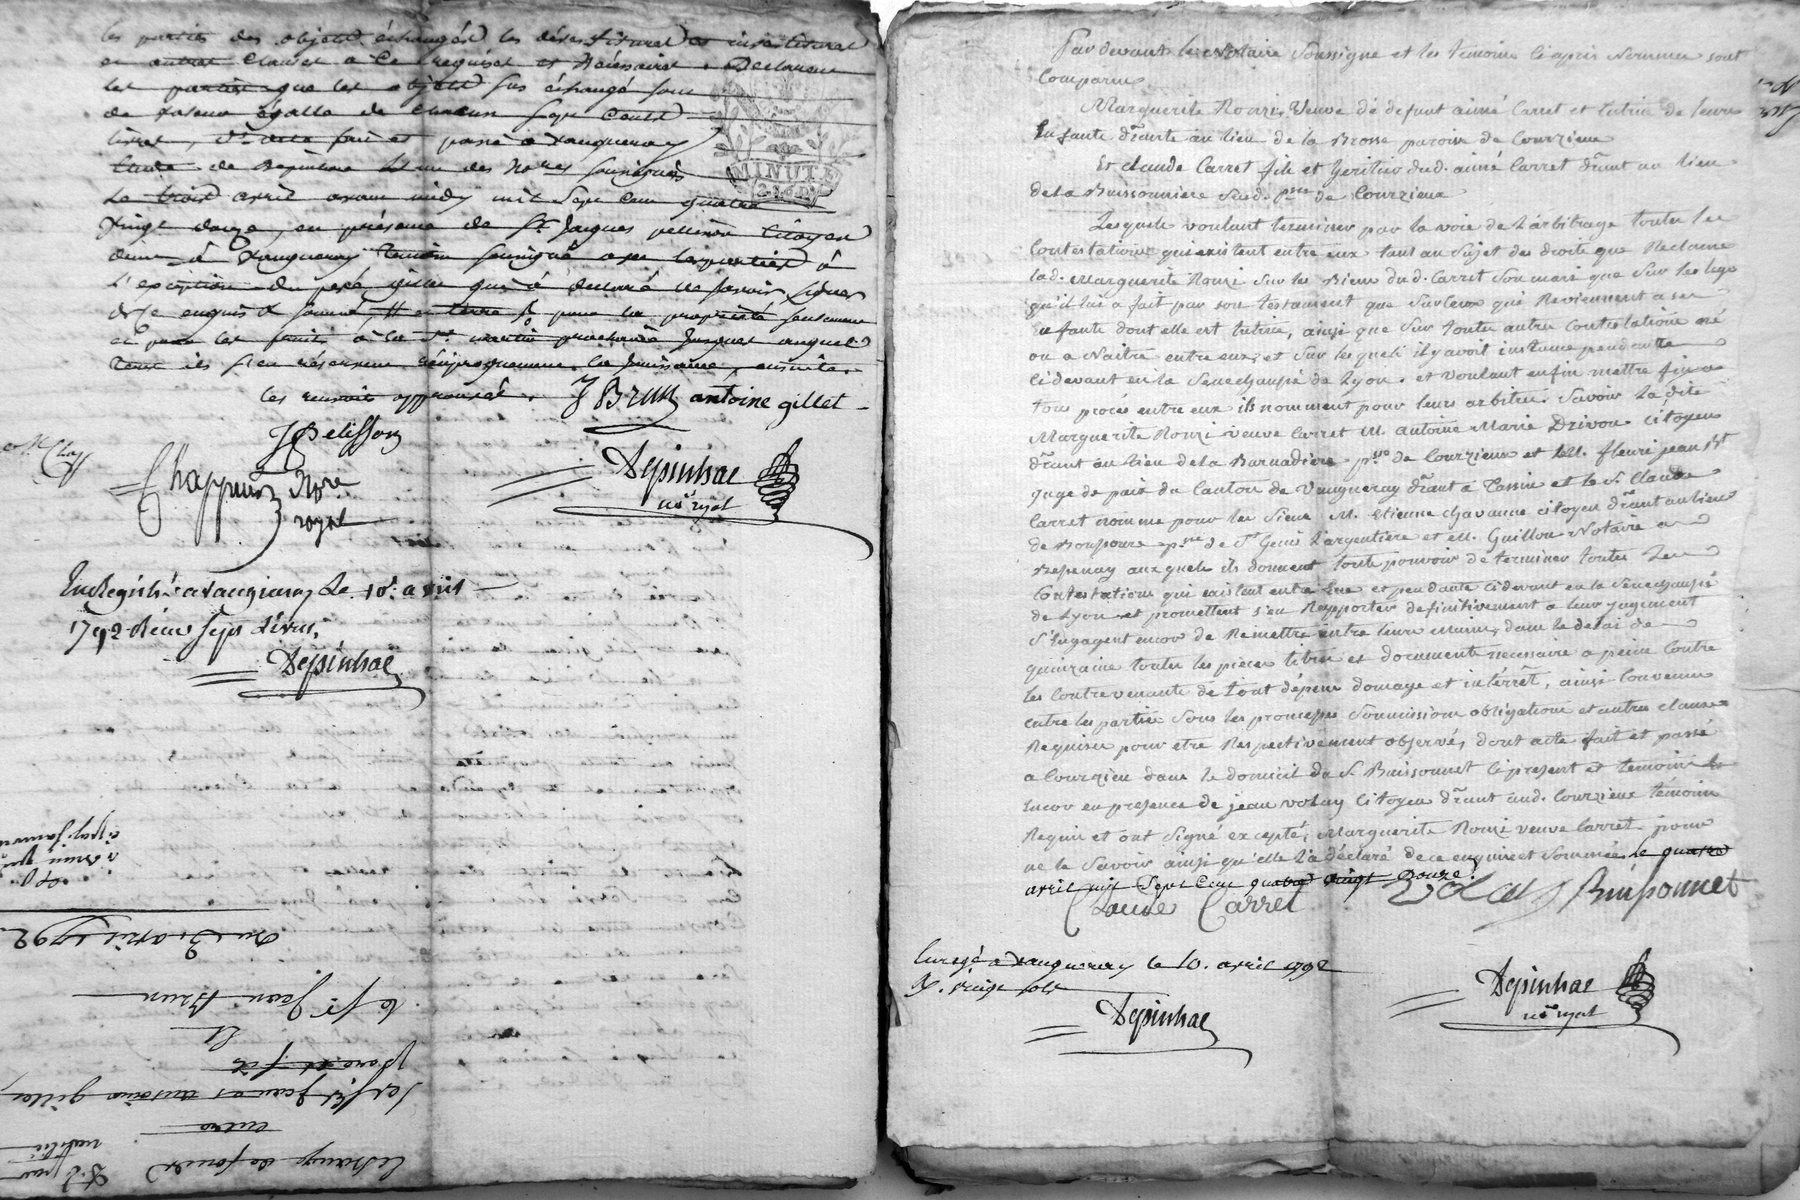 les parties des objets échangés les dévestitures et investitures
et autres clauses a ce requises et nécessaires. Déclarent
les parties que les objets sus échangé sont
de valeur égalle de chacun sept cents
livres, fait et passé à vaugneray
étude de Depinhac l'un des no.res soussignés
Le trois avril avant midy mil sept cent quatre
vingt douze, en présence de Sr. Jacques pelisson Citoyen
demt. à vaugneray témoin soussigné avec les parties à
l'exception du père gillet qui a déclaré ne savoir signer
de ce enquis & sommé, pour la propriété seulement
et pour les fruits à la St. martin prochaine jusques auquel
tems ils s'en réservent réciproquement la jouissance, ensuite.
les renvois approuvés. J Brun antoine gillet
J Pelisson
Chappuis Nore. royal
Depinhac
nre royal
Enregistré a vaugneray Le 10. avril
1792 Récus sept Livres.
Depinhac
MINUTE
Du 3. avril 1792.
le Sr. Jean Brun
Et
père et fils
Srs. Jean et antoine gillet
entre
Echange de fonds
Par devant le Notaire soussigné et les témoins ci après Nommés sont
Comparus
Marguerite Ronzi Veuve de defunt aimé Carret et tutrice de leurs
Enfants dmrante au lieu de la Brosse paroisse de Courzieux
Et claude Carret fils et heritier dud. aimé Carret dmrant au lieu
de la Buissonniere sud. psse de Courzieux
Lesquels voulant terminer par la voie de l'arbitrage toutes les
Contestations qui existent entre eux tant au sujet des droits que Réclame
lad. Marguerite Ronzi sur les Biens dud. Carret son mari que sur les legs
qu'il lui a fait par son testament que sur ceux qui Reviennent a ses
enfants dont elle est tutrice, ainsi que sur toutes autres Contestations né
ou a Naitre entre eux, et sur lesquels il y avoit instance pendante
ci devant en la Senechaussé de Lyon. et voulant enfin mettre fin a
tous procès entre eux ils nomment pour leurs arbitres Savoir Ladite
Marguerite Ronzi veuve Carret M. antoine Marie Drivon citoyen
dmrant au lieu de la Barnadiere psse de Courzieux et M. fleuri jean Bt
juge de paix du Canton de Vaugneray dmrant a Tassin et le S. Claude
Carret nomme pour les siens M. Etienne chavanne citoyen dmrant au lieu
de psse de St Genis L'argentiere et M. Guillon Notaire a
Bessenay auxquels ils donnent tout pouvoir de terminer toutes Les
Contestations qui existent entre Eux et pendante cidevant en la Senechaussé
de Lyon et promettent s'en Rapporter definitivement a leur jugement
S'engagent encore de Remettre entre leurs mains, dans le délai de
quinzaine toutes les pieces titres et documents necessaires a peine Contre
les Contrevenants de tout dépens domage et intérrêt, ainsi Convenu
entre les parties sous les promesses soumissions obligations et autres clauses
Requises pour etre Respectivement observés, dont acte fait et passé
a Courzieu dans le domicil du S. Buissonnet ci present et témoin
encore en presence de jean volay citoyen dmrant aud. Courzieux témoin
Requis et ont signé excepté, Marguerite Ronzi veuve Carret pour
ne le Savoir ainsi qu'elle l'a déclaré de ce enquise et Sommée, le quatre
avril mil Sept Cent quatre vingt Douze.
Claude Carret Volay Buissonnet
Enregé a vaugneray le 10. avril 1792
R. vingt sols
Depinhac
Depinhac
nre royal